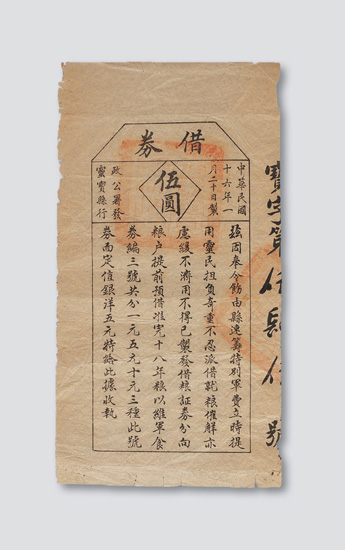 借券
中華民國
十六年一
月二十日製
伍圓
政公署發
靈寶縣行
茲因奉令飭由縣速籌特別軍費立時提
用靈民担負奇重不忍派借就粮催解亦
慮緩不濟用不得已製發借粮証券分向
粮户提前預借准完十八年粮以維軍食
券編三號共分一元五元十元三種此號
券面定值銀洋五元特給此據收執
寶字第 號